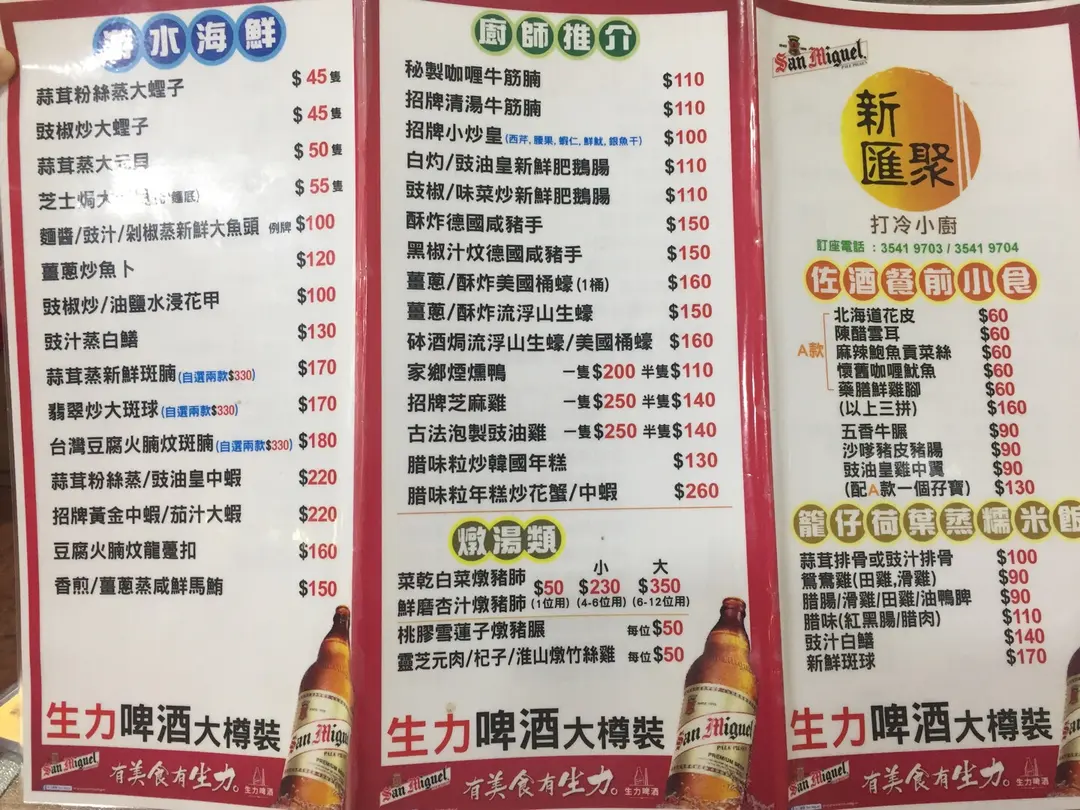 水海鮮
蒜茸粉絲蒸大蟶子 $45隻
豉椒炒大蟶子 $45隻
蒜茸蒸大元貝 $50隻
芝士焗大 麵底) $55隻
麵醬/豉汁/剁椒蒸新鮮大魚頭 例牌 $100
薑蔥炒魚卜 $120
豉椒炒/油鹽水浸花甲 $100
豉汁蒸白鱔 $130
蒜茸蒸新鮮斑腩(自選兩款$330) $170
翡翠炒大斑球(自選兩款$330) $170
台灣豆腐火腩炆斑腩(自選兩款$330) $180
蒜茸粉絲蒸/豉油皇中蝦 $220
招牌黃金中蝦/茄汁大蝦 $220
豆腐火腩炆龍躉扣 $160
香煎/薑蔥蒸咸鮮馬鮪 $150
生力啤酒大樽裝
San Miguel
有美食有生力。
生力啤酒
廚師推介
秘製咖喱牛筋腩 $110
招牌清湯牛筋腩 $110
招牌小炒皇(西芹, 腰果, 蝦仁, 鮮魷, 銀魚干) $100
白灼/豉油皇新鮮肥鵝腸 $110
豉椒/味菜炒新鮮肥鵝腸 $110
酥炸德國咸豬手 $150
黑椒汁炆德國咸豬手 $150
薑蔥/酥炸美國桶蠔(1桶) $160
薑蔥/酥炸流浮山生蠔 $150
砵酒焗流浮山生蠔/美國桶蠔 $160
家鄉煙燻鴨 一隻$200 半隻$110
招牌芝麻雞 一隻$250 半隻$140
古法泡製豉油雞 一隻$250 半隻$140
腊味粒炒韓國年糕 $130
腊味粒年糕炒花蟹/中蝦 $260
燉湯類
小 大
菜乾白菜燉豬肺 $50 $230 $350
鮮磨杏汁燉豬肺 (1位用) (4-6位用) (6-12位用)
桃膠雪蓮子燉豬𦟌 每位$50
靈芝元肉/杞子/淮山燉竹絲雞 每位$50
生力啤酒大樽裝
San Miguel
PREMIUM
San Miguel
有美食有生力。
生力啤酒
San Miguel
PALE PILSEN
新匯聚
打冷小廚
訂座電話 : 3541 9703 / 3541 9704
佐酒餐前小食
北海道花皮 $60
陳醋雲耳 $60
A款 麻辣鮑魚貢菜絲 $60
懷舊咖喱魷魚 $60
藥膳鮮雞腳 $60
(以上三拼) $160
五香牛𦟌 $90
沙嗲豬皮豬腸 $90
豉油皇雞中翼 $90
(配A款一個孖寶) $130
籠仔荷葉蒸糯米飯
蒜茸排骨或豉汁排骨 $100
鴛鴦雞(田雞,滑雞) $90
腊腸/滑雞/田雞/油鴨脾 $90
腊味(紅黑腸/腊肉) $110
豉汁白鱔 $140
新鮮斑球 $170
生力啤酒大樽裝
San Miguel
有美食有生力。
生力啤酒